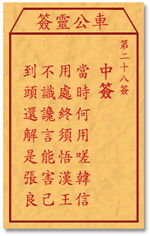 車公靈簽
第二十八簽
中簽
當時何用嗟韓信
用處終須悟漢王
不識讒言能害己
到頭還解是張良